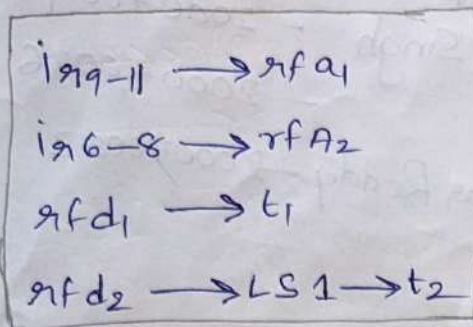 ir9-11 → rf a1
ir6-8 → rf A2
rfd1 → t1
rfd2 → LS1 → t2